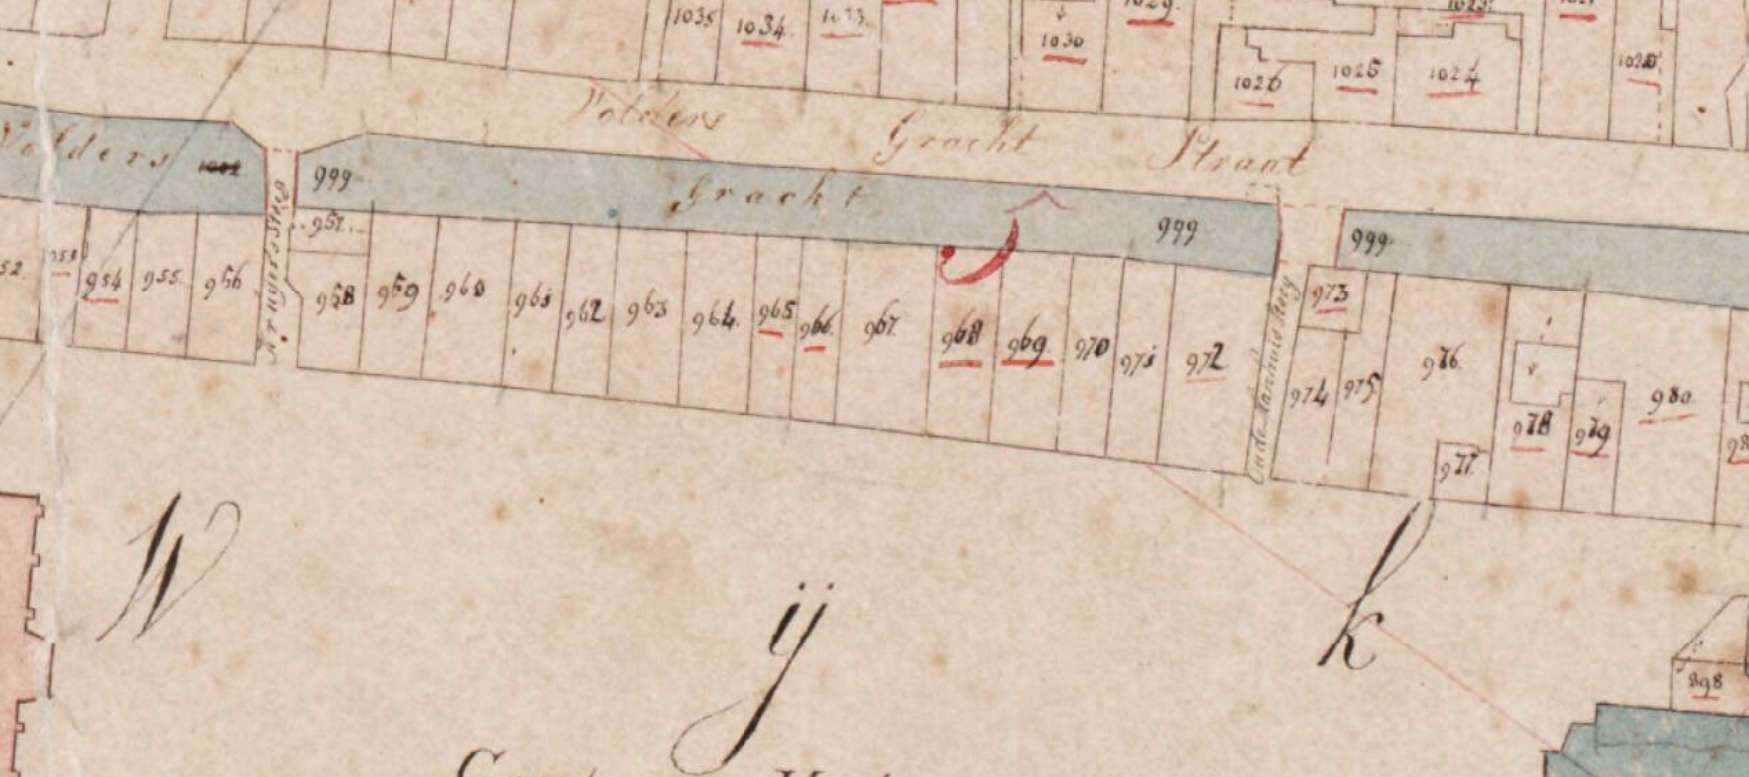 1035
1034
1029
1030
1026
1025
1024
Volders
Gracht
Straat
Volders
999
Gracht
999
999
52.
953
954
955
956
957
958
959
960
961
962
963
964
965
966
967
968
969
970
971
972
973
974
975
976
977
978
979
980
W
ij
k
898